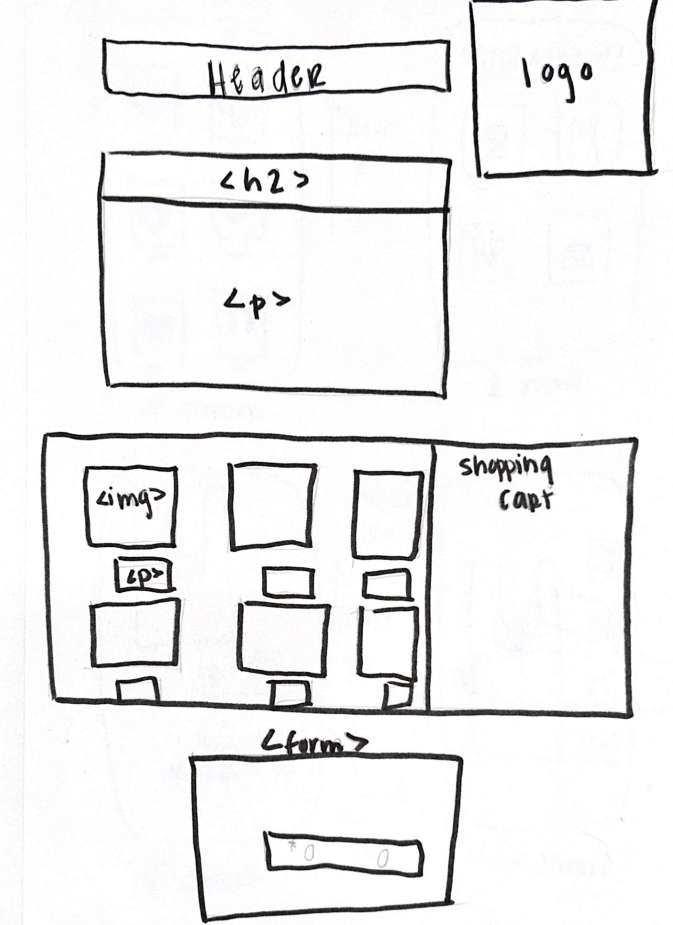 Header
logo
<h2>
<p>
<img>
<p>
shopping
cart
<form>
* 0 0